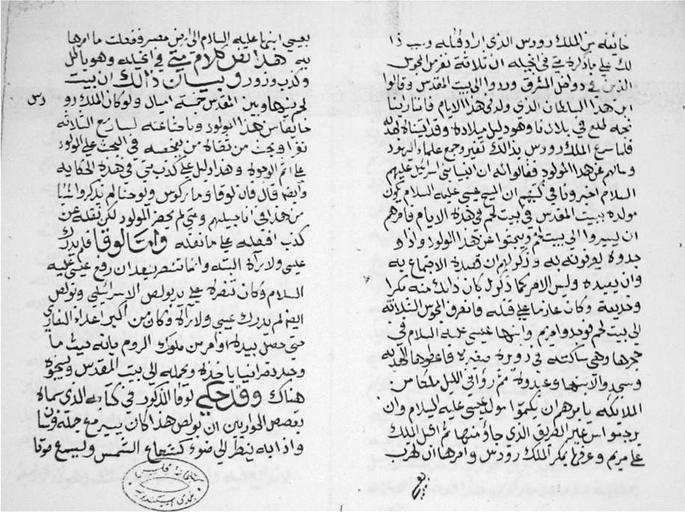 خائفا من الملك رودس الذي اراد قتله وسبب ذا
لك على ما ذكره متى في انجيله ان ثلاثة نفر من المجوس
الذين في دولة المشرق وردوا الى بيت المقدس وقالوا
اين هذا السلطان الذي ولد في هذا الايام فانا راينا
نجمه طلع في بلادنا وهو دليل ميلاده وقد اتيناه
فلما سمع الملك رودس بذالك تغير وجمع علماء اليهود
وسالهم عن هذا المولود فقالوا له ان انبياء بني اسرائيل عليهم
السلام اخبرونا في كتبهم ان المسيح عيسى عليه السلام يكون
مولده ببيت المقدس في بيت لحم في هذه الايام فامرهم
ان يسيروا الى بيت لحم ويبحثوا عن هذا المولود واذا و
جدوه يعرفونه به وذكر لهم ان قصده الاجتماع به
وان يعبده وليس الامر كما ذكر بل كان ذلك منه مكرا
وخديعة وكان عازما على قتله فانصرف المجوس الثلاثة
الى بيت لحم فوجدوا مريم وابنها عيسى عليه السلام في
حجرها وهي ساكنة في دويرة صغيرة فاعطوها الهدية
وسجدوا لابنها وعبدوه ثم رؤا في الليل ملكا من
الملائكة يامرهم ان يكتموا مولد عيسى عليه السلام وان
يرجعوا من غير الطريق الذي جاؤ منها ثم اقبل الملك
على مريم وعرفها بمكر الملك رودس وامرها ان تهرب
بعيسى ابنها عليه السلام الى ارض مصر ففعلت ما امرها
به هذا نص كلام متى في انجيله وهو باطل
وكذب وزور وبيان ذالك ان بيت
لحم بينها وبين المقدس خمسة اميال ولو كان الملك رو
دس
خائفا من هذا المولود وباحثا عنه لسار مع الثلاثة
نفر او بعث من ثقاته من يخصه في البحث على المولود
على اتم الوجوه وهذا دليل على كذب متى في هذه الحكاية
وايضا قال فان لوقا وماركوس ويوحنا لم يذكروا شيئا
من هذا في اناجيلهم ومتى لم يحضر المولود لكن نقله عن
كذب افتعله على ما نقله واما لوقا فلم يدرك
عيسى ولا رآه البتة وانما تنصر بعد ان رفع عيسى عليه
السلام وكان تنصره على يد بولص الاسرائيلي وبولص
ايضا لم يدرك عيسى ولا رآه وكان من اكبر اعداء النصارى
حتى حصل بيده اوامر من ملوك الروم بانه حيث ما
وجد نصرانيا ياخذه ويحمله الى بيت المقدس ويسجنه
هناك وقد حكى لوقا المذكور في كتابه الذي سماه
بقصص الحواريين ان بولص هذا كان يسير مع جملة فرسان
واذا به ينظر الى ضوء كشعاع الشمس ويسمع صوتا